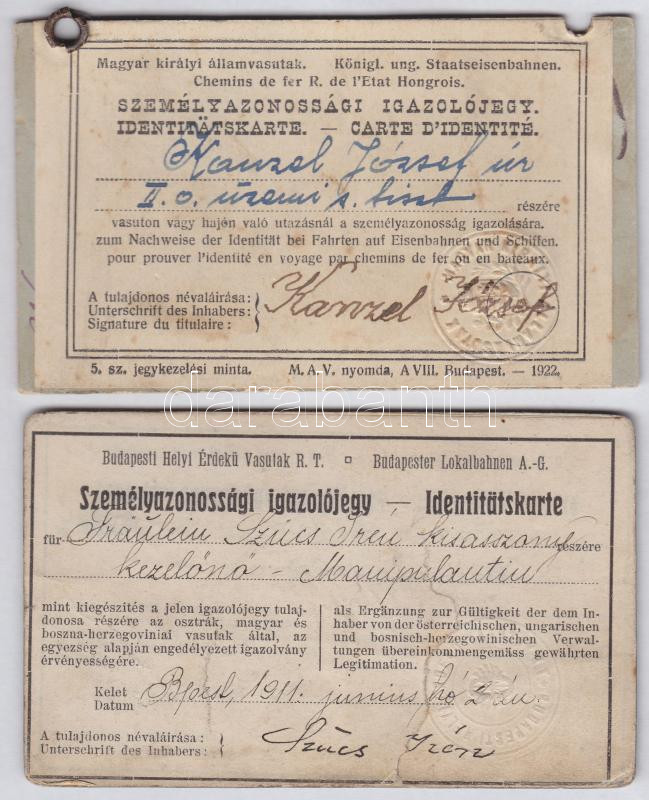 Magyar királyi államvasutak. Königl. ung. Staatseisenbahnen.
Chemins de fer R. de l'Etat Hongrois.
SZEMÉLYAZONOSSÁGI IGAZOLÓJEGY.
IDENTITÄTSKARTE. — CARTE D'IDENTITÉ.
Kanzel József úr
II. o. üzemi s. tiszt részére
vasuton vagy hajón való utazásnál a személyazonosság igazolására.
zum Nachweise der Identität bei Fahrten auf Eisenbahnen und Schiffen.
pour prouver l'identité en voyage par chemins de fer ou en bateaux.
A tulajdonos névaláirása:
Unterschrift des Inhabers:
Signature du titulaire :
Kanzel József
5. sz. jegykezelési minta. M. A. V. nyomda, A VIII. Budapest. — 1922.
darabanth
Budapesti Helyi Érdekü Vasutak R. T. □ Budapester Lokalbahnen A.-G.
Személyazonossági igazolójegy — Identitätskarte
für Fräulein Szücs Irén kisasszony részére
kezelőnő - Manipulantin
mint kiegészítés a jelen igazolójegy tulaj-
donosa részére az osztrák, magyar és
boszna-herzegoviniai vasutak által, az
egyezség alapján engedélyezett igazolvány
érvényességére.
als Ergänzung zur Gültigkeit der dem In-
haber von der österreichischen, ungarischen
und bosnisch-herzegowinischen Verwal-
tungen übereinkommengemäss gewährten
Legitimation.
Kelet
Datum
Bpest, 1911. junius hó 2 án.
A tulajdonos névaláirása:
Unterschrift des Inhabers:
Szücs Irén